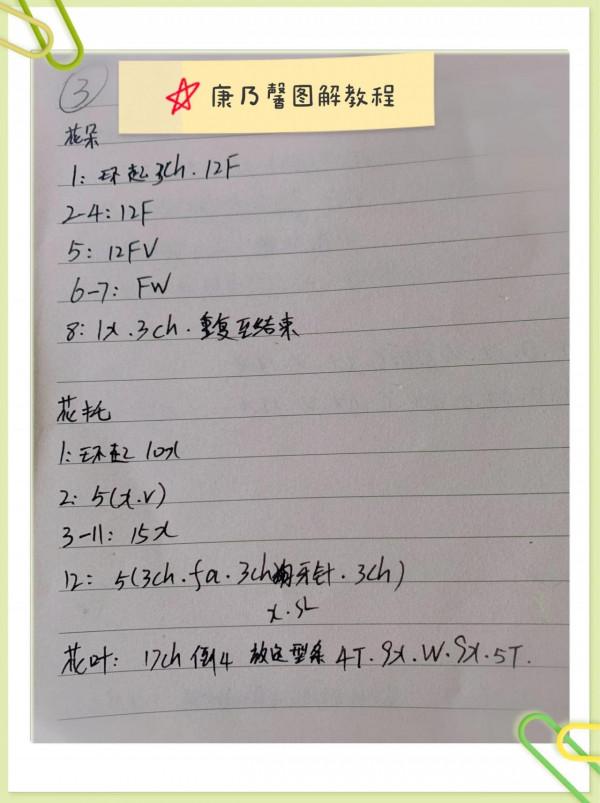 ③
☆ 康乃馨图解教程
花朵
1: 环起3ch. 12F
2-4: 12F
5: 12FV
6-7: FW
8: 1x. 3ch. 重复至结束
花托
1: 环起 10x
2: 5(x.v)
3-11: 15x
12: 5(3ch. fa. 3ch 牙针. 3ch)
x. SL
花叶: 17ch 倒4 放定型条 4T. 9x. W. 9x. 5T.